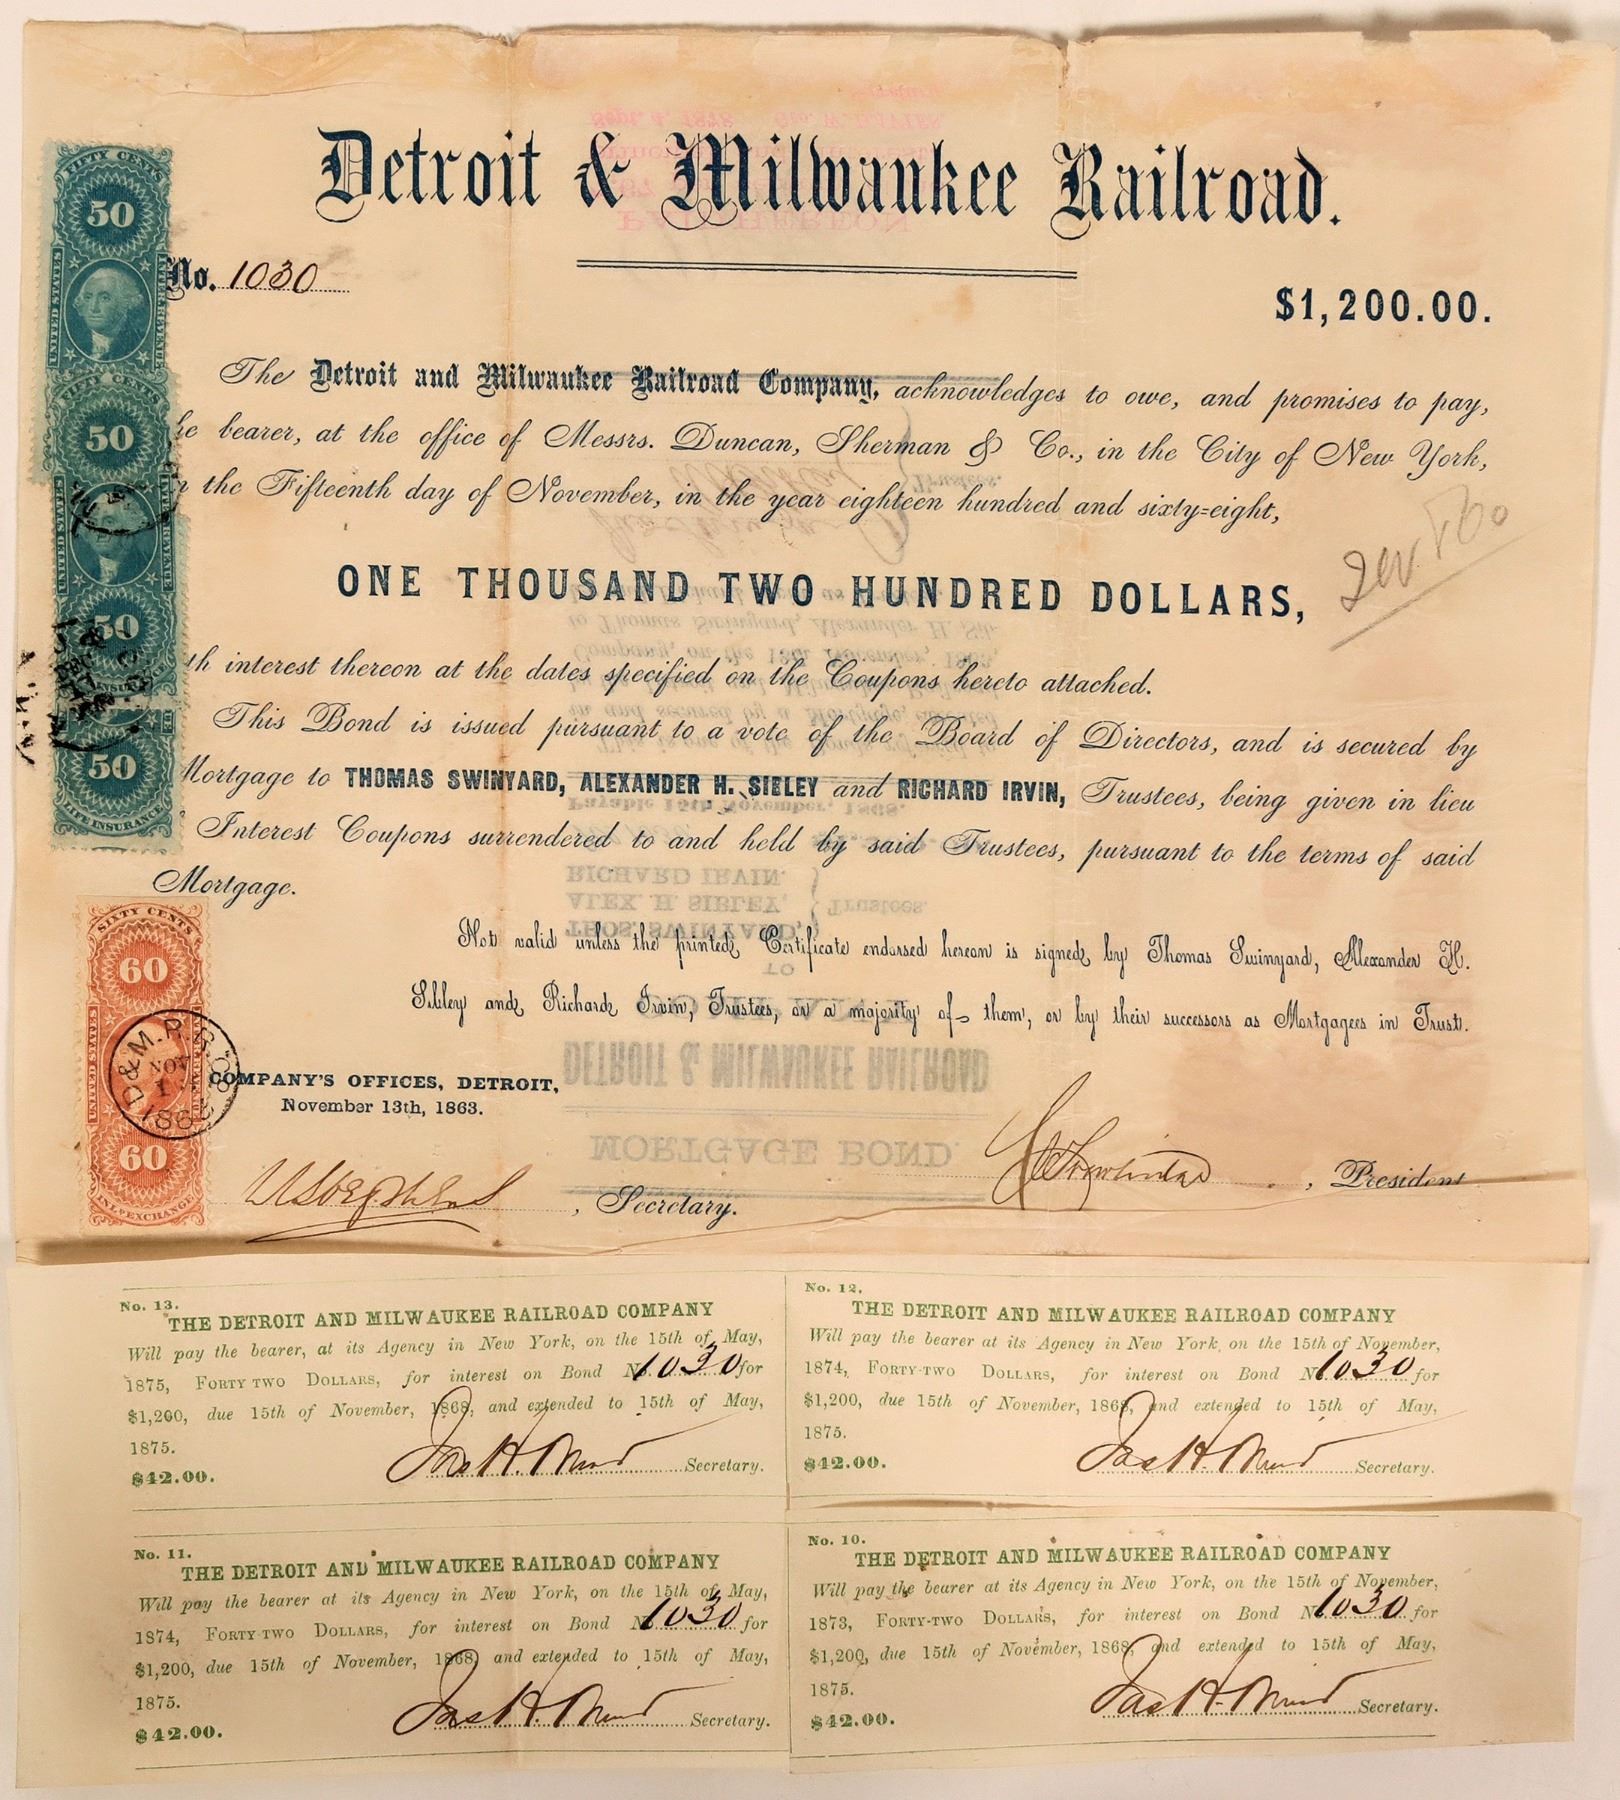 Detroit & Milwaukee Railroad.
No. 1030
$1,200.00.
The Detroit and Milwaukee Railroad Company, acknowledges to owe, and promises to pay,
he bearer, at the office of Messrs. Duncan, Sherman & Co., in the City of New York,
the Fifteenth day of November, in the year eighteen hundred and sixty=eight,
ONE THOUSAND TWO HUNDRED DOLLARS,
th interest thereon at the dates specified on the Coupons hereto attached.
This Bond is issued pursuant to a vote of the Board of Directors, and is secured by
Mortgage to THOMAS SWINYARD, ALEXANDER H. SIBLEY and RICHARD IRVIN, Trustees, being given in lieu
Interest Coupons surrendered to and held by said Trustees, pursuant to the terms of said
Mortgage.
Not valid unless the printed Certificate endorsed hereon is signed by Thomas Swinyard, Alexander H.
Sibley and Richard Irvin, Trustees, or a majority of them, or by their successors as Mortgagees in Trust.
COMPANY'S OFFICES, DETROIT,
November 13th, 1863.
, Secretary.
, President
FIFTY CENTS
50
UNITED STATES
INTER. REVENUE
FIFTY CENTS
50
UNITED STATES
50
LIFE INSURANCE
50
LIFE INSURANCE
SIXTY CENTS
60
UNITED STATES
D & M. R.
NOV
1863
60
INL. EXCHANGE
No. 13.
THE DETROIT AND MILWAUKEE RAILROAD COMPANY
Will pay the bearer, at its Agency in New York, on the 15th of May,
1875, FORTY TWO DOLLARS, for interest on Bond N 1030 for
$1,200, due 15th of November, 1868, and extended to 15th of May,
1875.
$42.00.
Jas H. Muir Secretary.
No. 12.
THE DETROIT AND MILWAUKEE RAILROAD COMPANY
Will pay the bearer at its Agency in New York, on the 15th of November,
1874, FORTY-TWO DOLLARS, for interest on Bond N 1030 for
$1,200, due 15th of November, 1868, and extended to 15th of May,
1875.
$42.00.
Jas H. Muir Secretary.
No. 11.
THE DETROIT AND MILWAUKEE RAILROAD COMPANY
Will pay the bearer at its Agency in New York, on the 15th of May,
1874, FORTY-TWO DOLLARS, for interest on Bond N 1030 for
$1,200, due 15th of November, 1868, and extended to 15th of May,
1875.
$42.00.
Jas H. Muir Secretary.
No. 10.
THE DETROIT AND MILWAUKEE RAILROAD COMPANY
Will pay the bearer at its Agency in New York, on the 15th of November,
1873, FORTY-TWO DOLLARS, for interest on Bond N 1030 for
$1,200, due 15th of November, 1868, and extended to 15th of May,
1875.
$42.00.
Jas H. Muir Secretary.